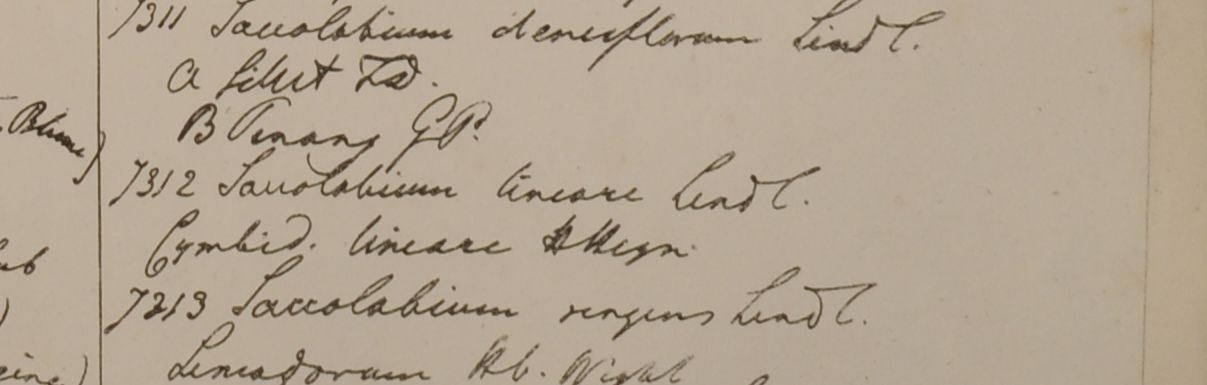 7311 Saccolabium densiflorum Lindl.
a Silhet FD.
B Penang GP.
Blume)
7312 Saccolabium lineare Lindl.
Cymbid. lineare HHeyn.
7313 Saccolabium ringens Lindl.
Limodorum Hb. Wight